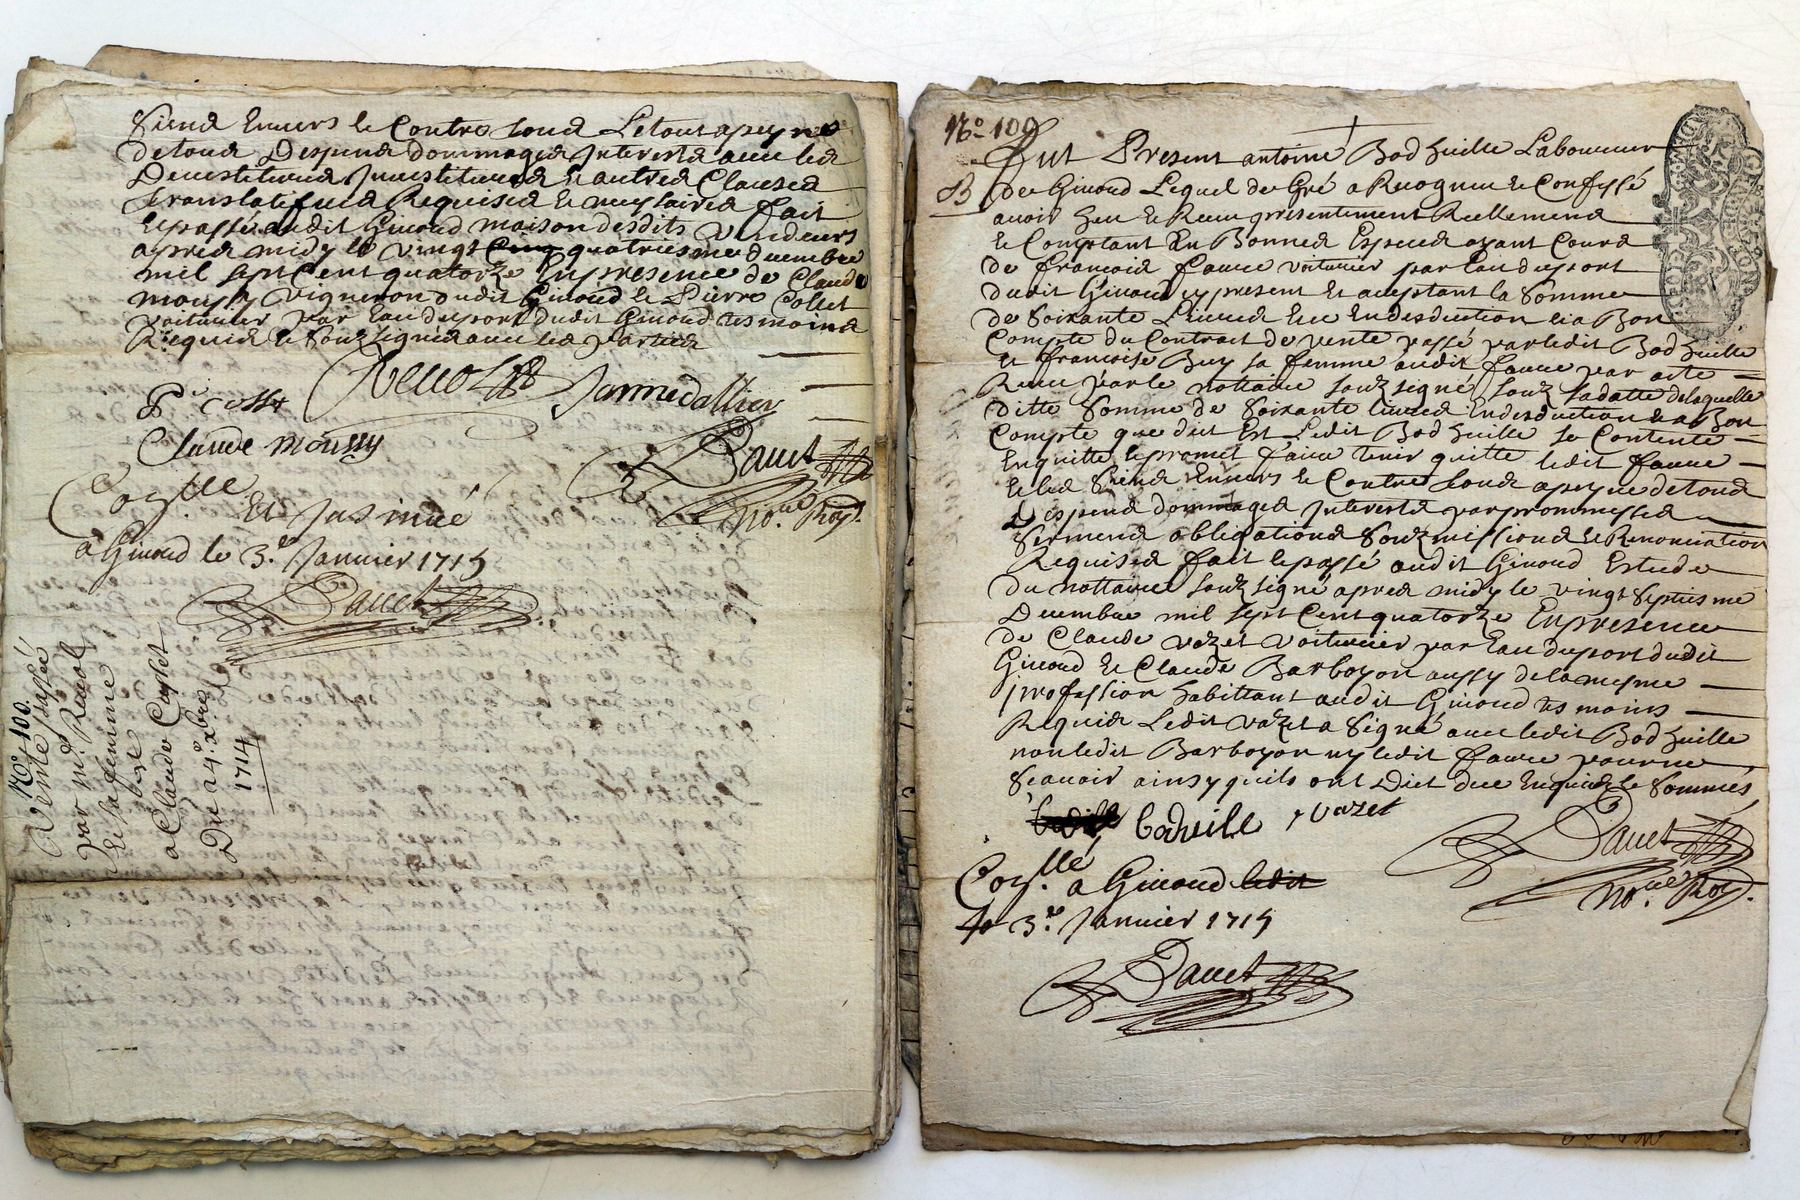 Siens Envers le Contre tous Letout apeyne
detous Despens dommages Interests avec les
Devestitures Investitures et autres Clauses
translatifves Requises et necessaires fait
et passé audit Givord maison desdits vendeurs
apres midy le vingt Cinq quatriesme decembre
mil sept Cent quatorze En presence de Claude
moussy vigneron dudit Givord et Pierre Collet
voiturier par Eau du port dudit Givord tesmoins
Requis et Soubsignés avec les parties
Revol
Claude moussy
Dauet
no.re Roy.
Con.llé Et Insinué
a Givord le 3.e Janvier 1715
Dauet
No. 100.
Vente passée
par m.e Revol
Et sa femme
a Claude
Du 24.e xbre
1714
No. 100
Fut Present antoine Bodhuille Laboureur
B de Givord Lequel de Gré a Recognu et Confessé
avoir heu et Receu presentement Reellement
et Comptant En Bonnes Especes ayant Cours
de francois faure voiturier par Eau du port
dudit Givord cy present et aceptant la Somme
de Soixante Livres Et ce En desduction et a Bon
Compte du Contract de vente passé par ledit Bodhuille
et francoise Buy sa femme audit faure par acte
Receu par le nottaire soubsigné soubs sa datte de laquelle
ditte Somme de Soixante livres En desduction et a Bon
Compte que dit Est Ledit Bodhuille se Contente
En quitte et promet faire tenir quitte ledit faure
et les Siens Envers et Contre tous apeyne de tous
despens dommages Interests par prommesses
Serments obligations Soubmissions et Renonciation
Requises fait et passé audit Givord Estude
du nottaire soubsigné apres midy le vingt Septiesme
Decembre mil sept Cent quatorze En presence
de Claude vozet voiturier par Eau du port dudit
Givord et Claude Barboyon aussy de la mesme
profession habittant audit Givord tesmoins
Requis Ledit vozet a Signé avec ledit Bodhuille
non ledit Barboyon ny ledit faure pour ne
Scavoir ainsy quils ont Dict de ce Enquis et Sommés
boduile vozet
Dauet
no.re Roy.
Con.llé a Givord ledit
le 3.e Janvier 1715
Dauet